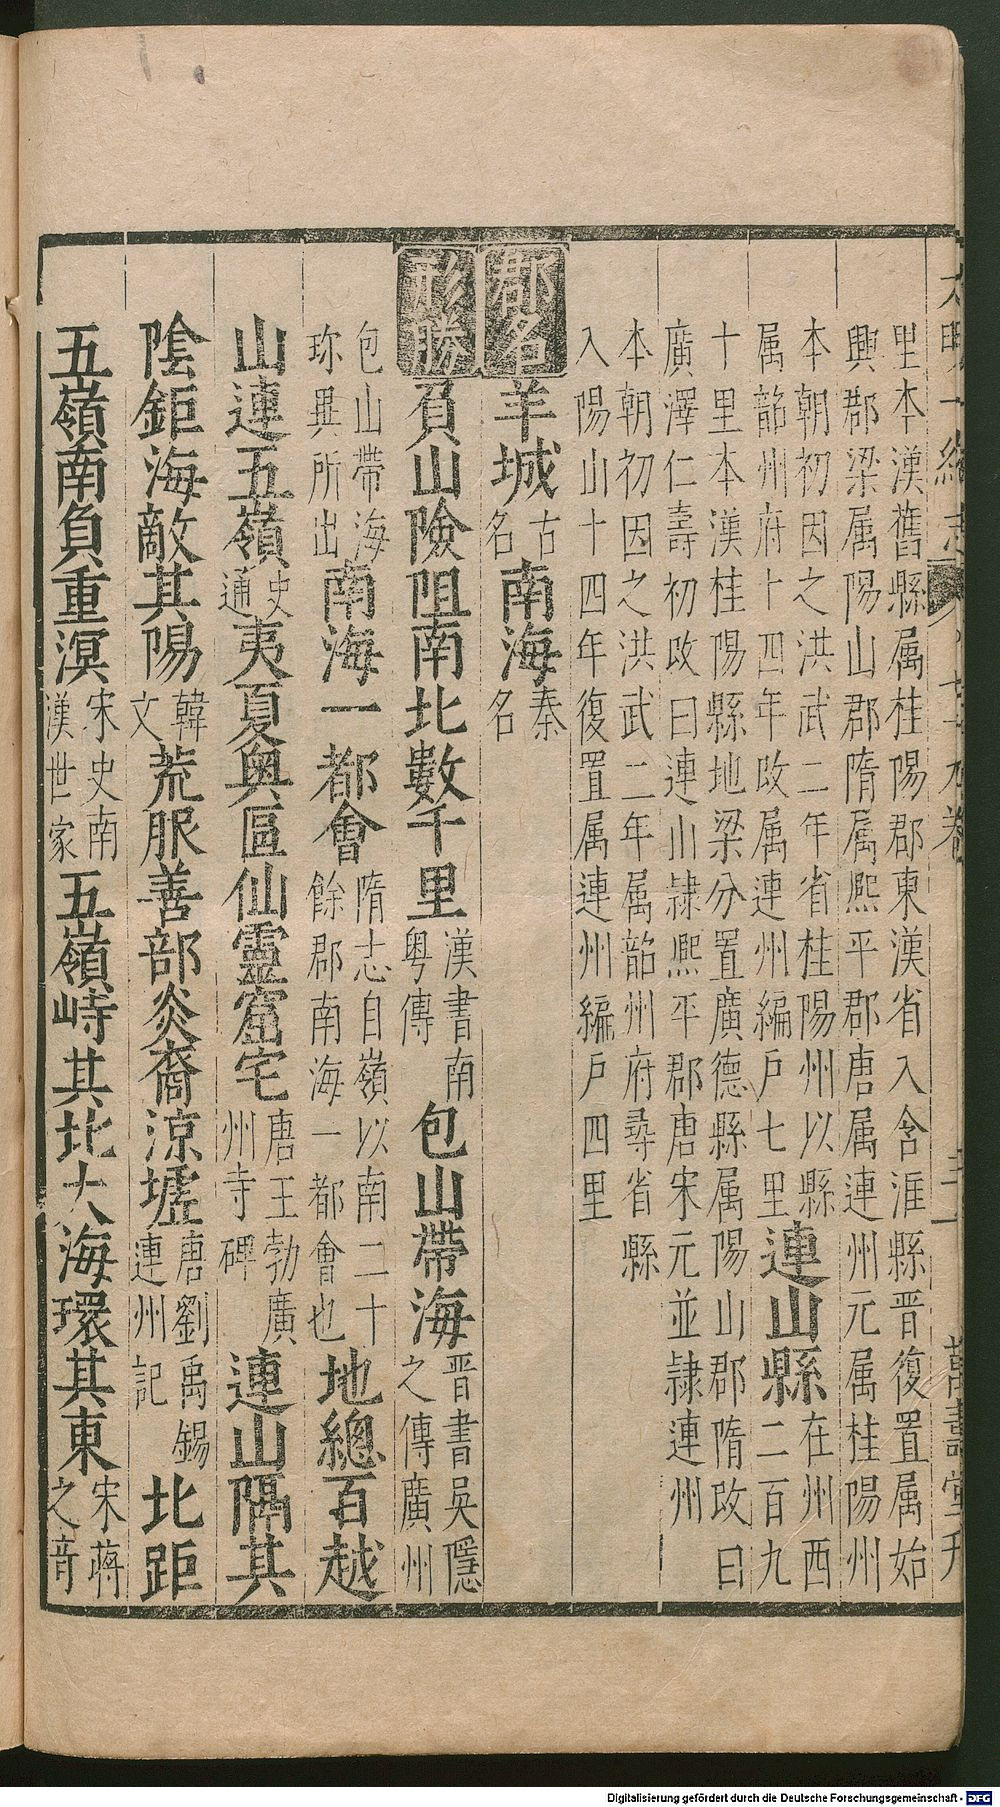 大明一統志 七十九卷 三 萬壽堂刊
里本漢舊縣属桂陽郡東漢省入含洭縣晋復置属始
興郡梁属陽山郡隋属熈平郡唐属連州元属桂陽州
本朝初因之洪武二年省桂陽州以縣
属韶州府十四年改属連州編戶七里 連山縣 在州西
二百九
十里本漢桂陽縣地梁分置廣德縣属陽山郡隋改曰
廣澤仁壽初改曰連山隷熈平郡唐宋元並隷連州
本朝初因之洪武二年属韶州府尋省縣
入陽山十四年復置属連州編戶四里
郡名 羊城 古名 南海 秦名
形勝 負山險阻南北數千里 漢書南粤傳 包山帶海 晋書吳隱之傳廣州
包山帶海珎異所出 南海一都會 隋志自嶺以南二十餘郡南海一都會也 地總百越
山連五嶺 史通 夷夏奥區仙靈窟宅 唐王勃廣州寺碑 連山隔其
陰鉅海敵其陽 韓文 荒服善部炎裔涼墟 唐劉禹錫連州記 北距
五嶺南負重溟 宋史南漢世家 五嶺峙其北大海環其東 宋蒋之竒
Digitalisierung gefördert durch die Deutsche Forschungsgemeinschaft - DFG